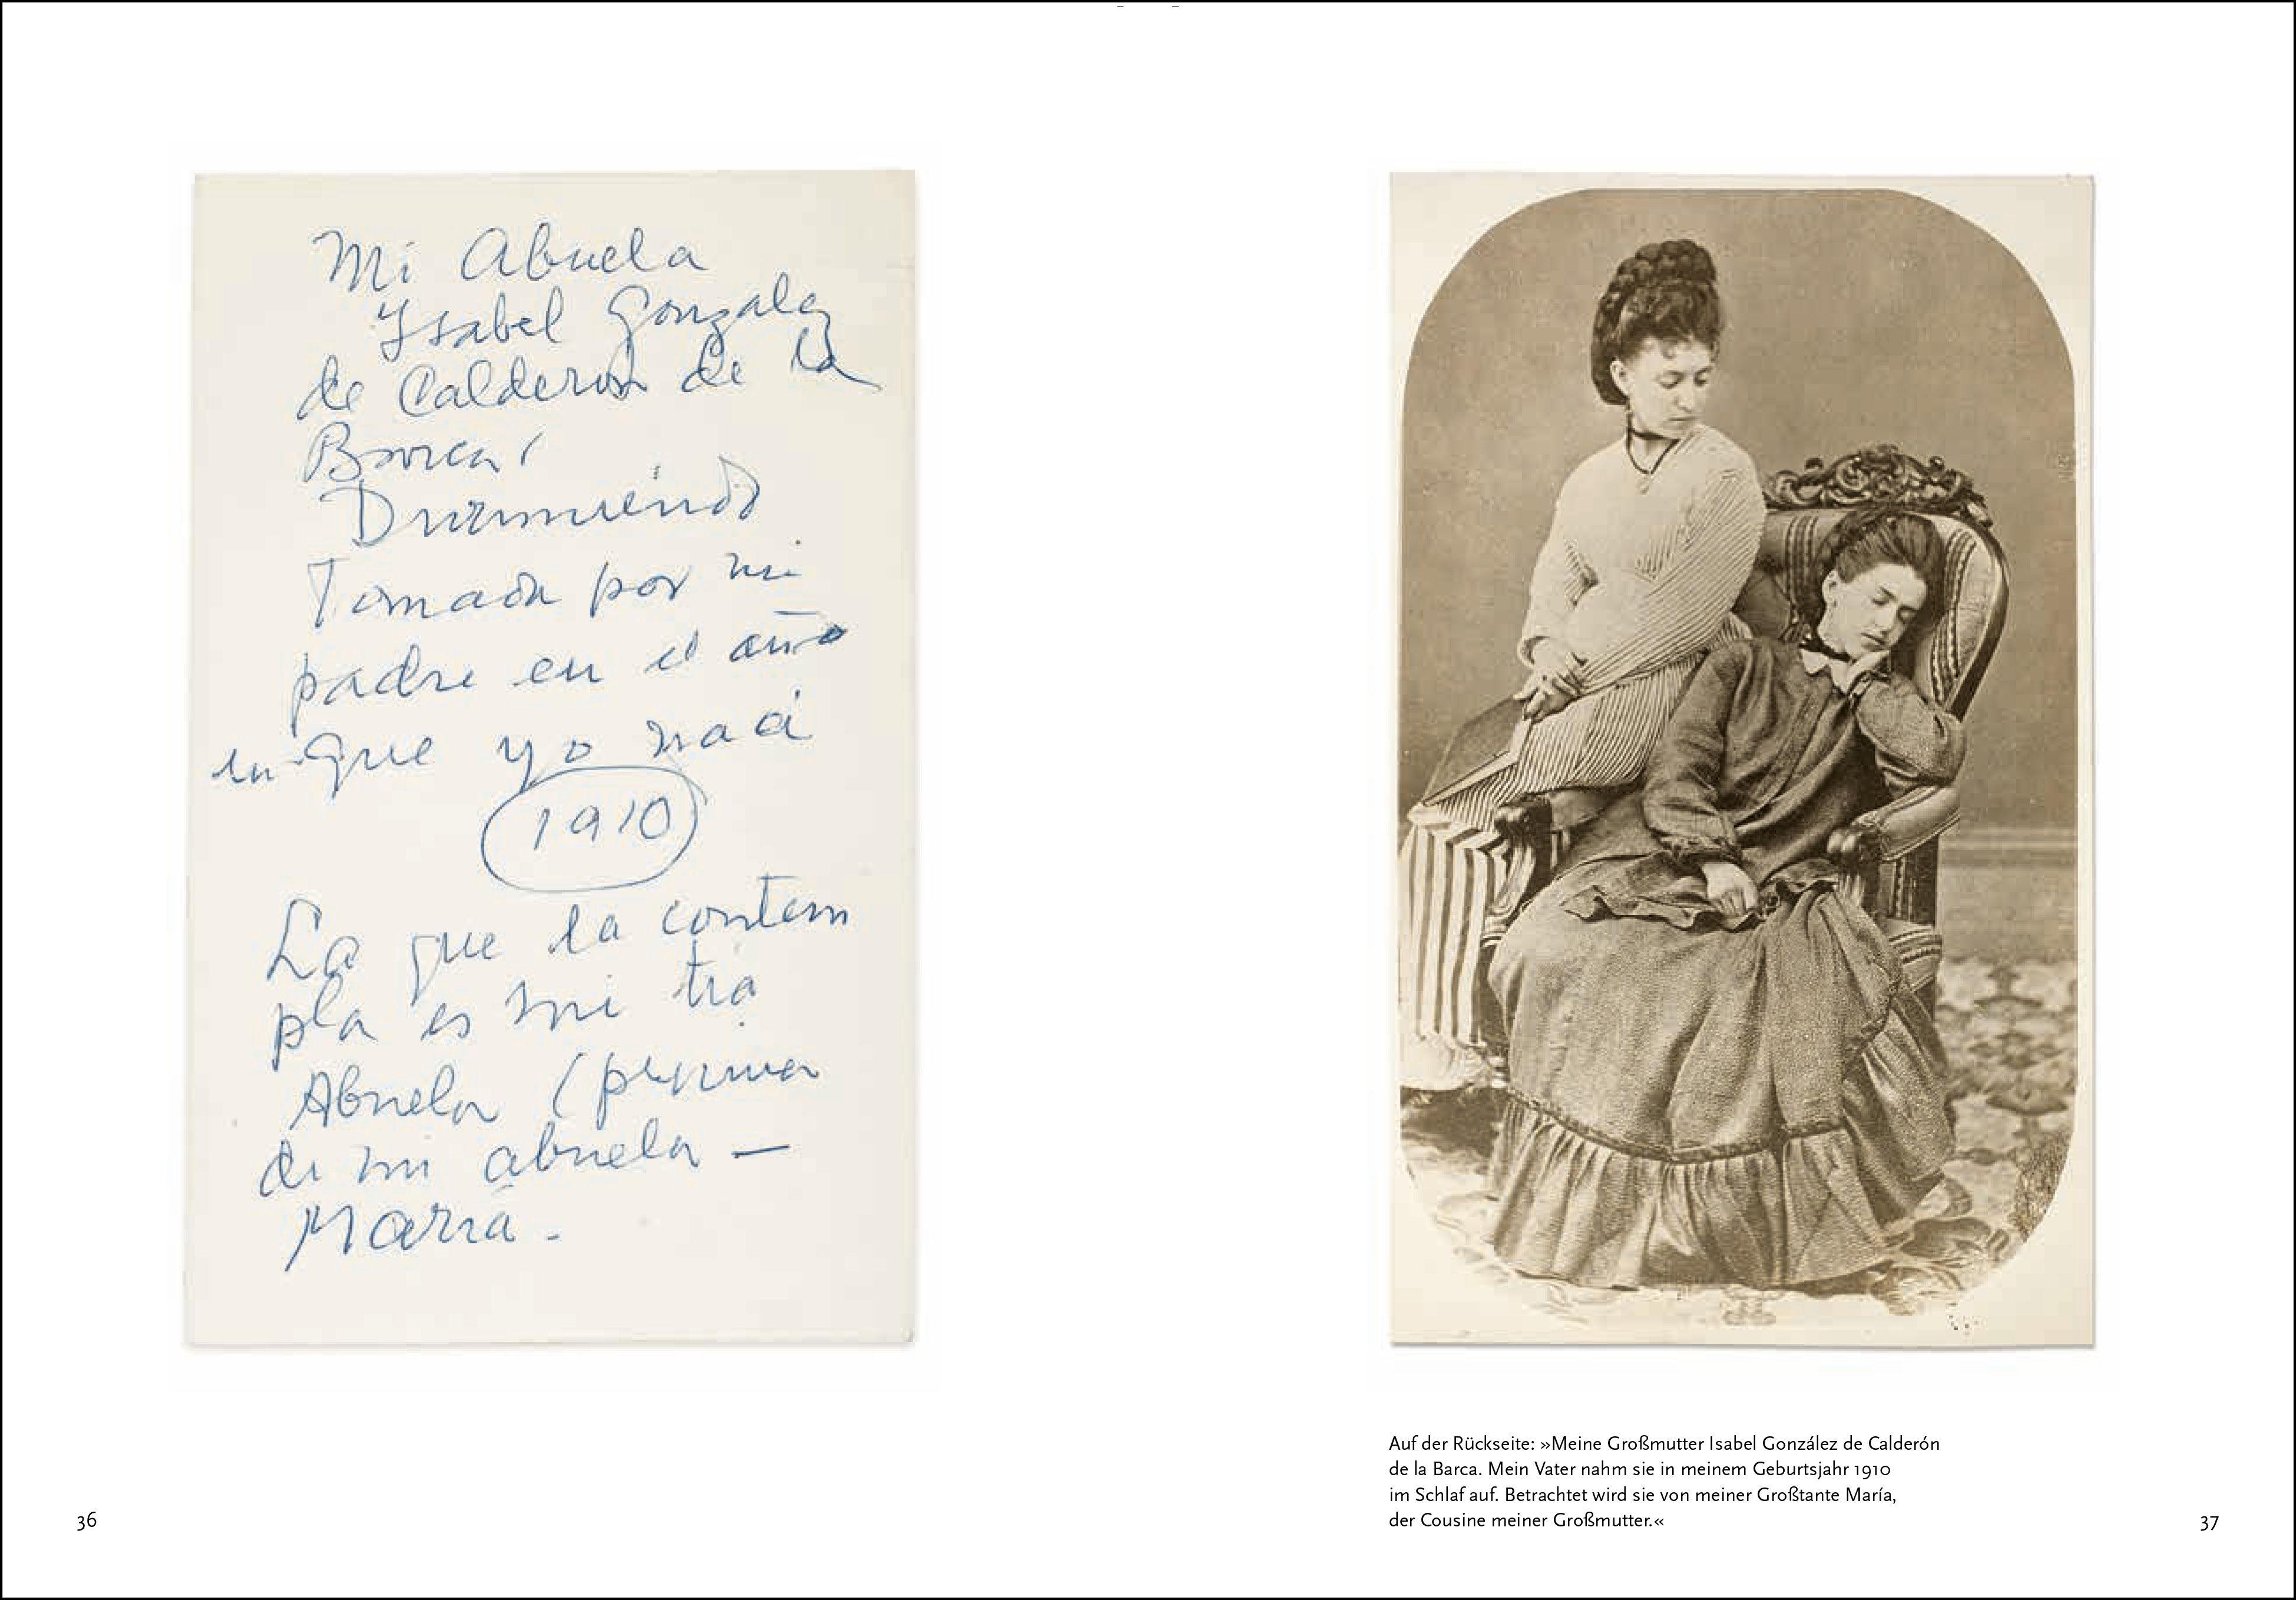 Mi Abuela
Ysabel Gonzalez
de Calderon de la
Barca
Durmiendo
Tomada por mi
padre en el año
en que yo nací
1910
La que la contem
pla es mi tia
Abuela (prima
de mi abuela —
María -
36
Auf der Rückseite: »Meine Großmutter Isabel González de Calderón
de la Barca. Mein Vater nahm sie in meinem Geburtsjahr 1910
im Schlaf auf. Betrachtet wird sie von meiner Großtante María,
der Cousine meiner Großmutter.«
37